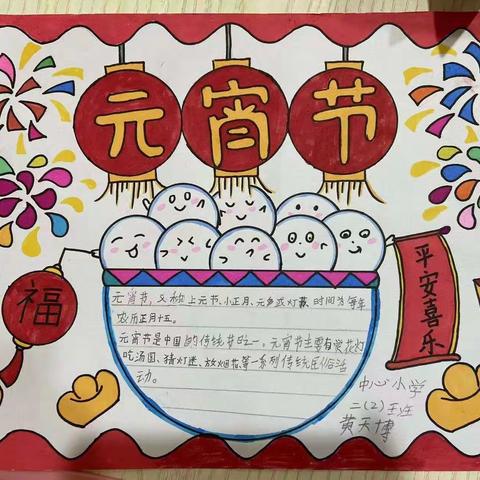 元宵节
福
平安喜乐
元宵节,又称上元节、小正月、元夕或灯节,时间为每年
农历正月十五。
元宵节是中国的传统节日之一,元宵节主要有赏花灯
吃汤圆、猜灯迷、放烟花等一系列传统民俗活
动。
中心小学
二(2)王班
黄天博